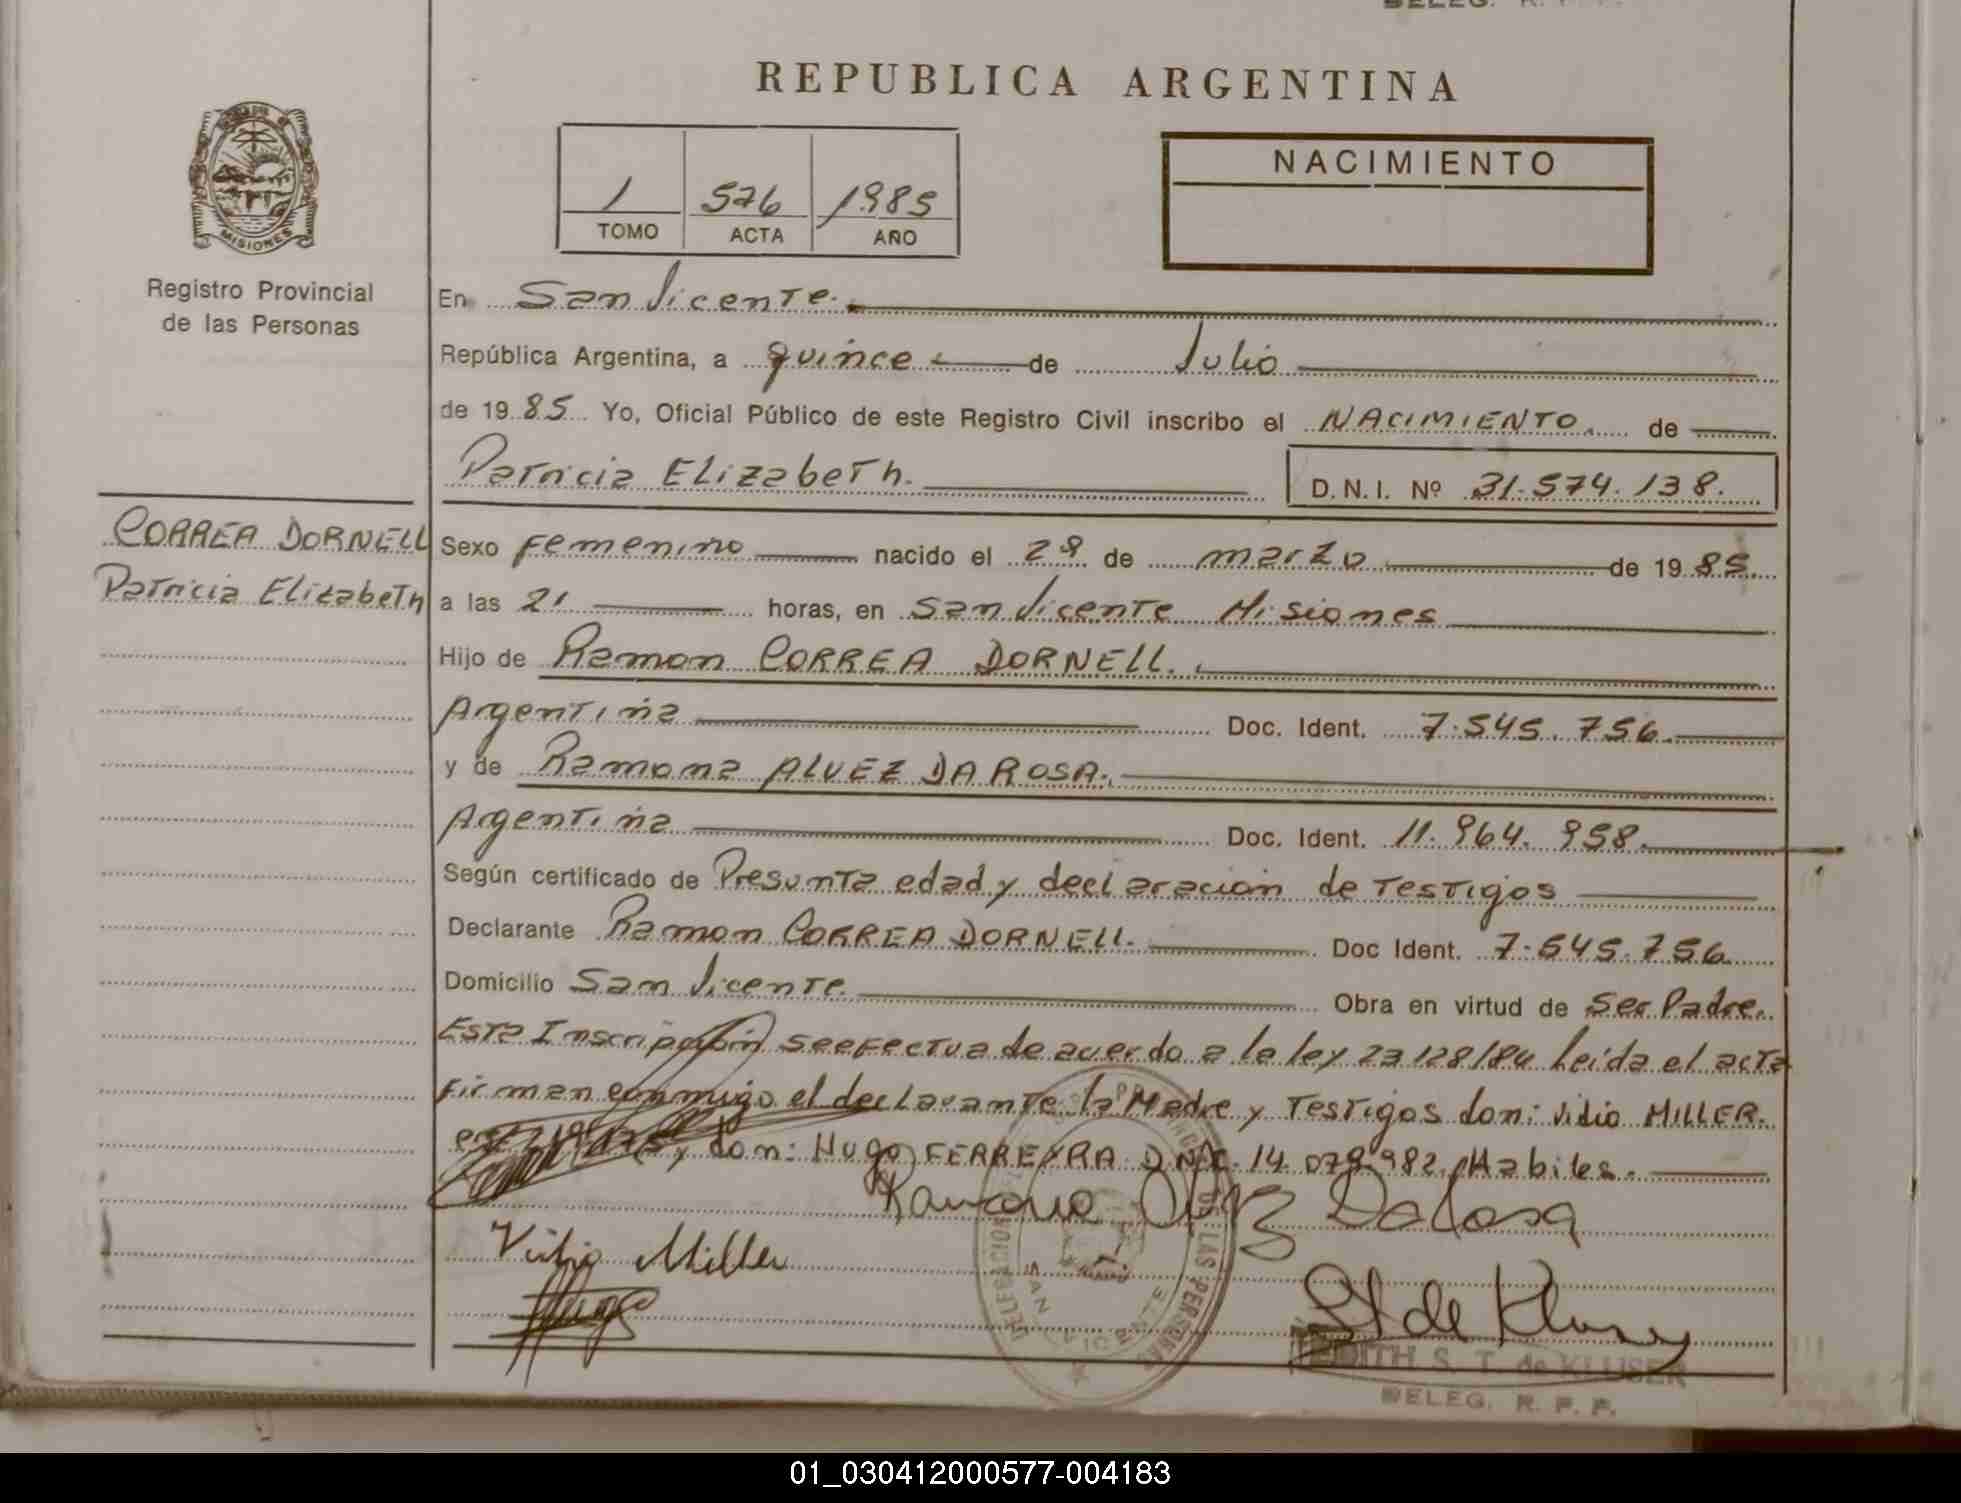 REPUBLICA ARGENTINA
MISIONES
Registro Provincial
de las Personas
1 576 1985
TOMO ACTA AÑO
NACIMIENTO
En San Vicente.
República Argentina, a quince de Julio
de 1985 Yo, Oficial Público de este Registro Civil inscribo el NACIMIENTO. de
Patricia Elizabeth.
D.N.I. Nº 31.574.138.
CORREA DORNELL
Patricia Elizabeth
Sexo Femenino nacido el 29 de marzo de 1985.
a las 21 horas, en San Vicente Misiones
Hijo de Ramon CORREA DORNELL.
Argentina Doc. Ident. 7.545.756.
y de Ramona ALVEZ DA ROSA.
Argentina Doc. Ident. 11.964.958.
Según certificado de Presunta edad y declaracion de Testigos
Declarante Ramon CORREA DORNELL. Doc Ident. 7.545.756
Domicilio San Vicente. Obra en virtud de Ser Padre.
Esta Inscripción se efectua de acuerdo a la ley 23128/84 Leída el acta
Firman conmigo el declarante la Madre y Testigos don: Vidio MILLER.
y don: Hugo FERREYRA D.N.I. 14.079.982. Habiles.
Ramona Da Rosa
Vidio Miller
DELEGACION
LAS PERSONAS
SAN VICENTE
EDITH S. T. de KLUSER
DELEG. R. P. P.
01_030412000577-004183